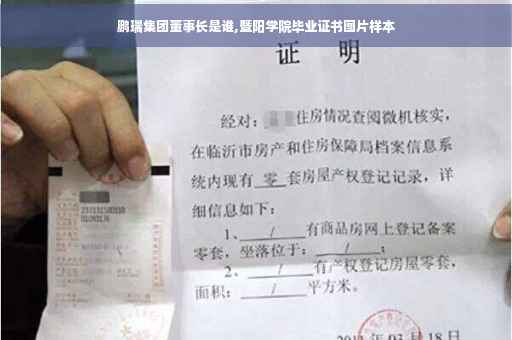 鹏瑞集团董事长是谁,暨阳学院毕业证书图片样本
证 明
经对：住房情况查阅微机核实，
在临沂市房产和住房保障局档案信息系
统内现有 零 套房屋产权登记记录，详
细信息如下：
1、 / 有商品房网上登记备案
零套，坐落位于： / ；
2、 / 有产权登记房屋零套，
面积： / 平方米。
03月18日